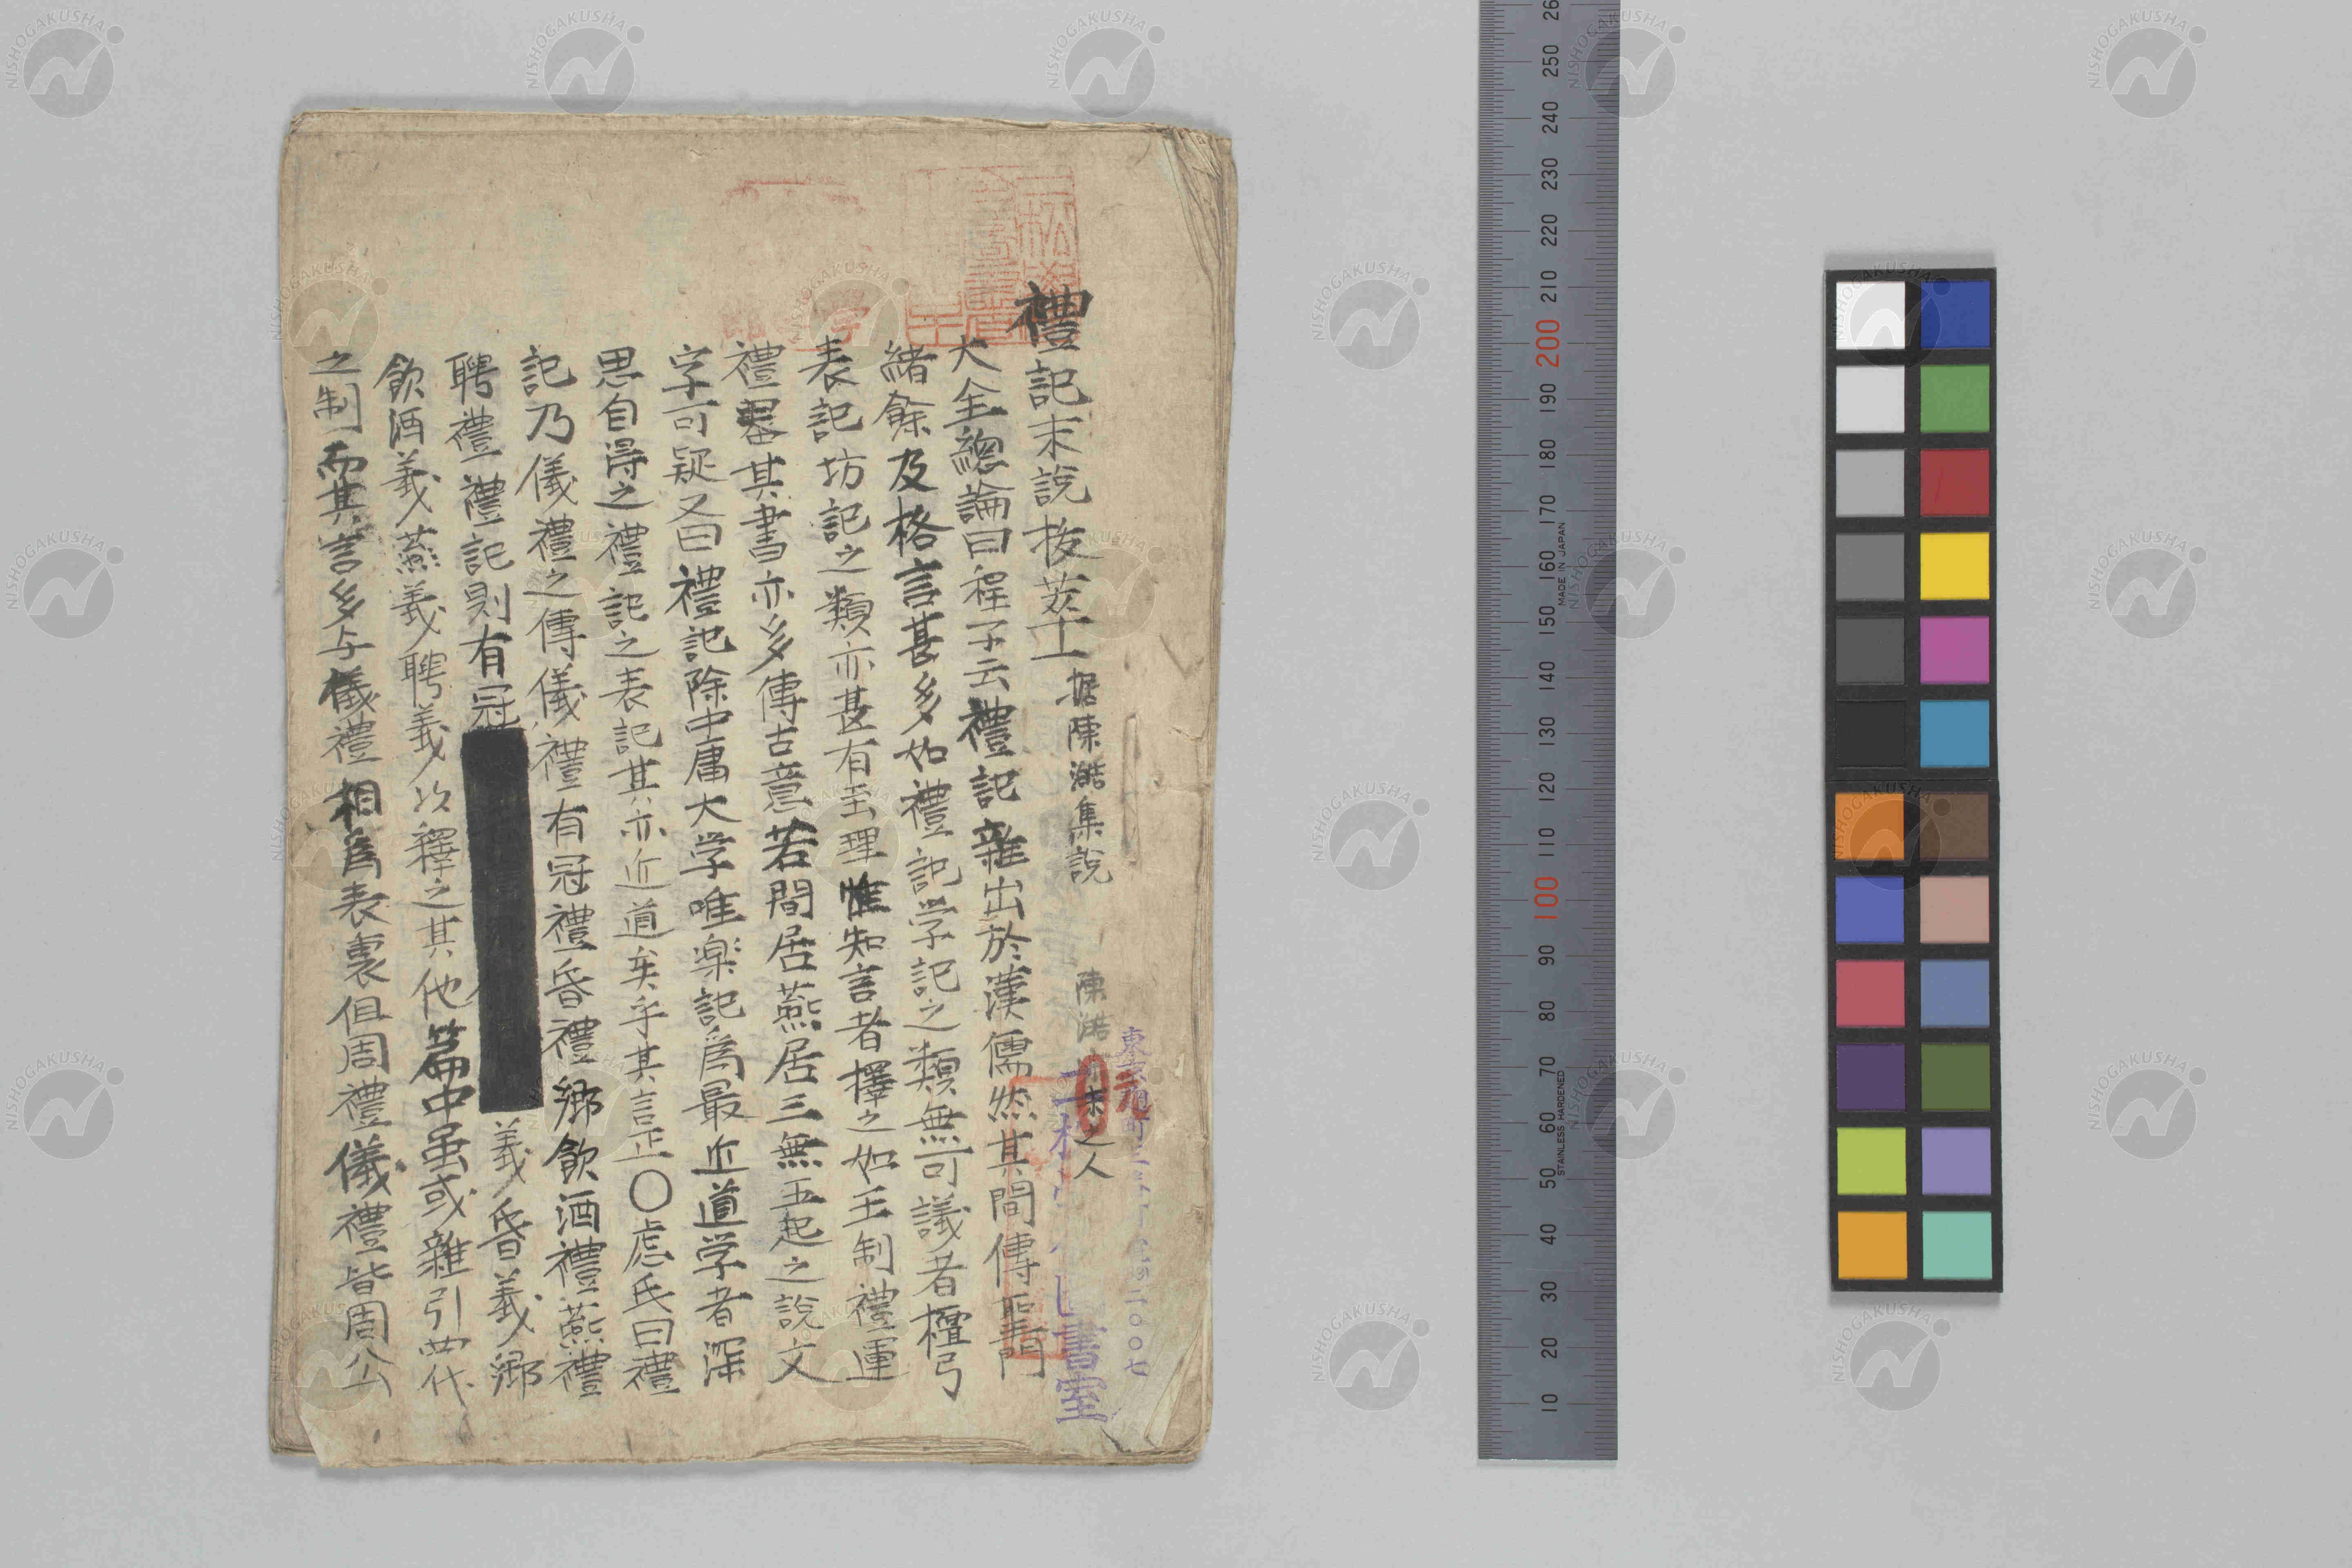 禮記末説抜萃上 据陳澔集説 陳澔 末之人
大全總論曰程子云禮記雜出於漢儒然其間傳聖門
緒餘及格言甚多如禮記学記之類無可議者檀弓
表記坊記之類亦甚有至理惟知言者擇之如王制禮運
禮器其書亦多傳古意若間居燕居三無五起之說文
字可疑又曰禮記除中庸大学唯楽記爲最近道学者深
思自得之禮記之表記其亦近道矣乎其言正〇慮氏曰禮
記乃儀禮之傳儀禮有冠禮昏禮鄉飲酒禮燕禮
聘禮禮記則有冠 義昏義鄉
飲酒義燕義聘義以釋之其他篇中虽或雜引四代
之制而其言多与儀禮相爲表裏但周禮儀禮皆周公
書室
二〇〇七
NISHOGAKUSHA
260 250 240 230 220 210 200 190 180 170 160 150 140 130 120 110 100 90 80 70 60 50 40 30 20 10
MADE IN JAPAN
STAINLESS HARDENED